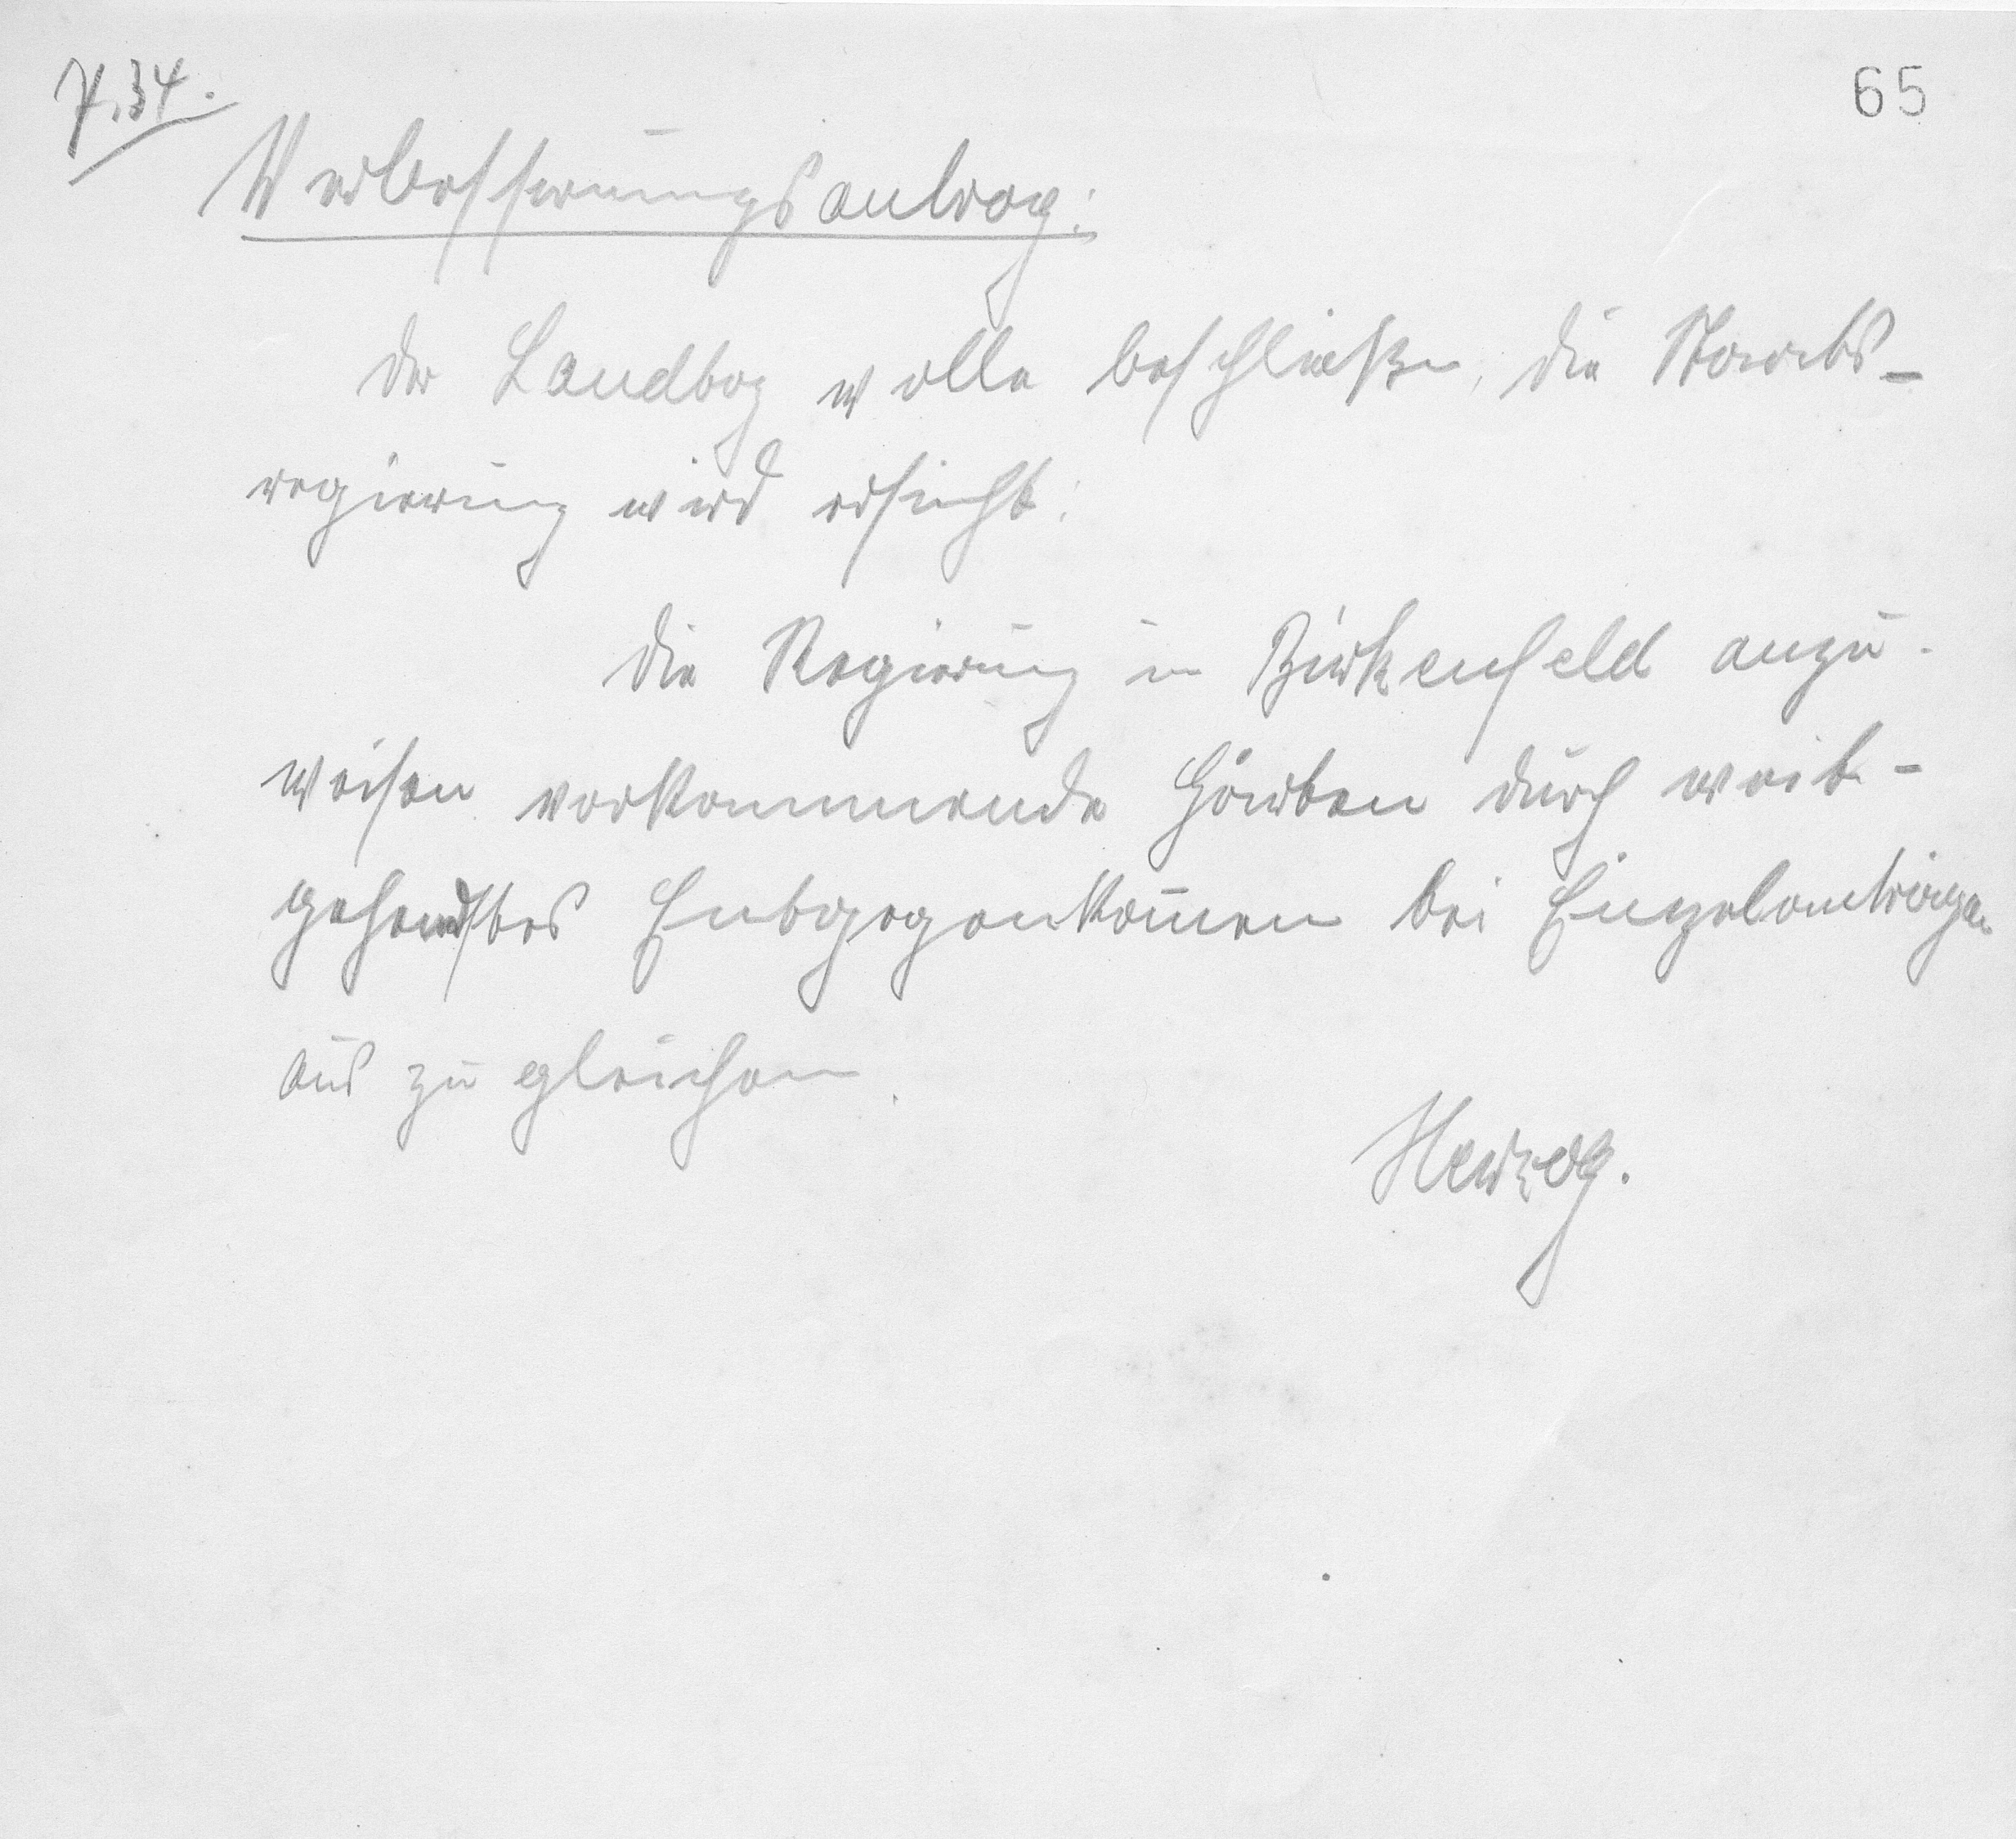 7.34.
65
Verbesserungsantrag:
Der Landtag wolle beschließen, die Staats-
regierung wird ersucht:
Die Regierung in Birkenfeld anzu-
weisen vorkommende Härten durch weit-
gehendstes Entgegenkom̅en bei Einzelanträgen
aus zu gleichen.
Herzog.